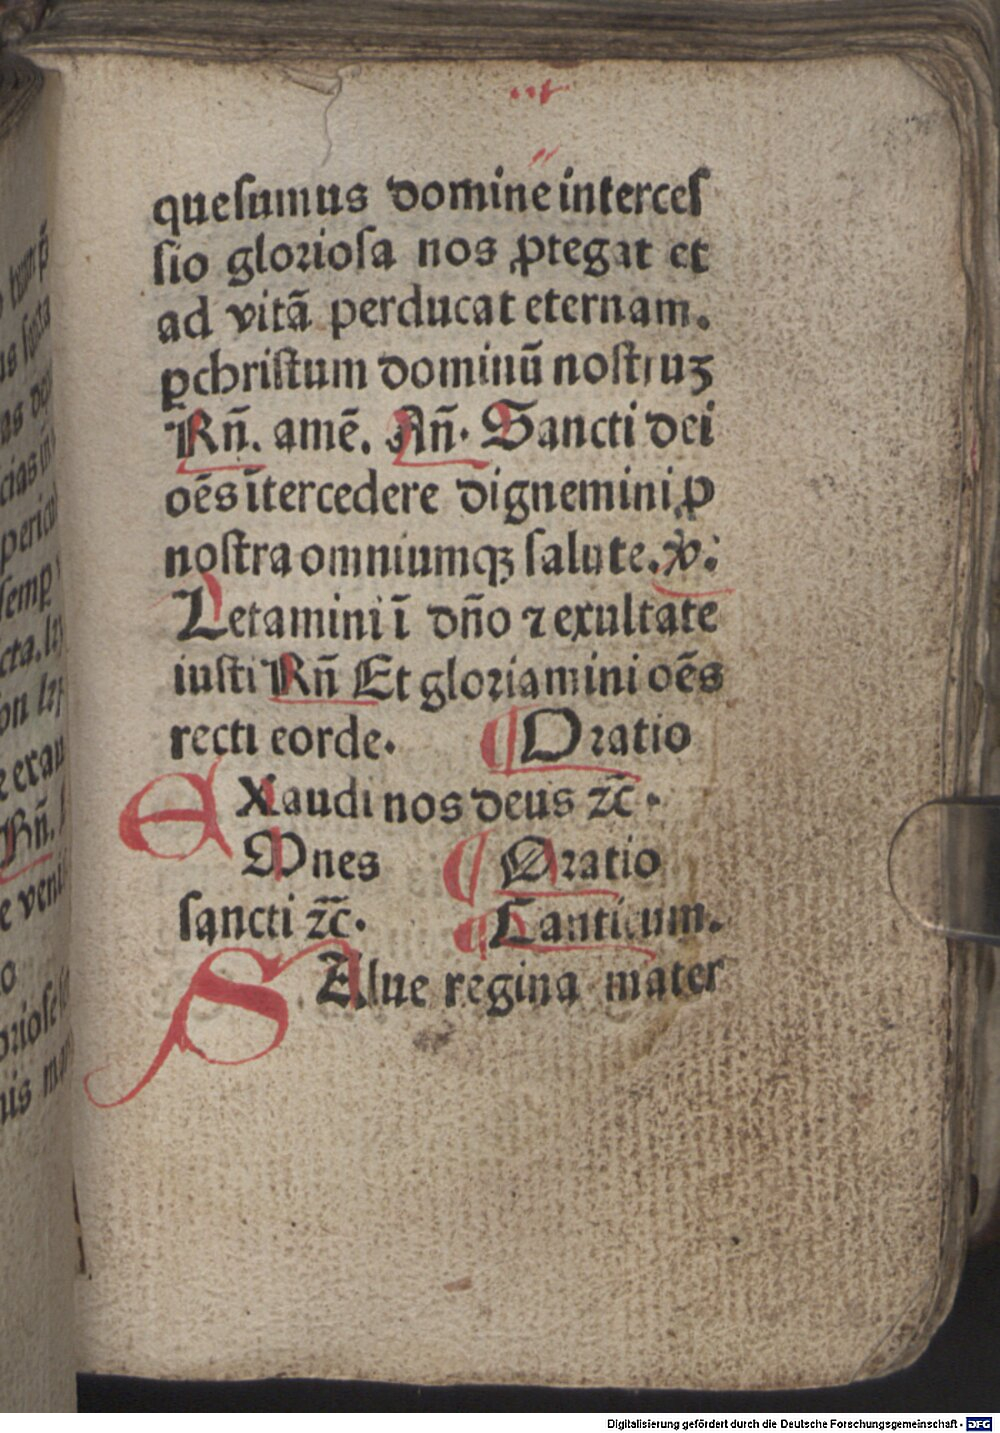 quesumus domine interces
sio gloriosa nos ꝓtegat et
ad vitã perducat eternam.
ꝑchristum dominũ nostruꝫ
Rñ. amẽ. Añ. Sancti dei
oẽs ĩtercedere dignemini ꝓ
nostra omniumqꝫ salute. ꝟ:
Letamini ĩ dño ⁊ exultate
iusti Rñ Et gloriamini oẽs
recti corde. ¶ Oratio
EXaudi nos deus ⁊c̄.
Omnes ¶ Oratio
sancti ⁊c̄. ¶ Canticum.
SAlue regina mater
Digitalisierung gefördert durch die Deutsche Forschungsgemeinschaft - DFG